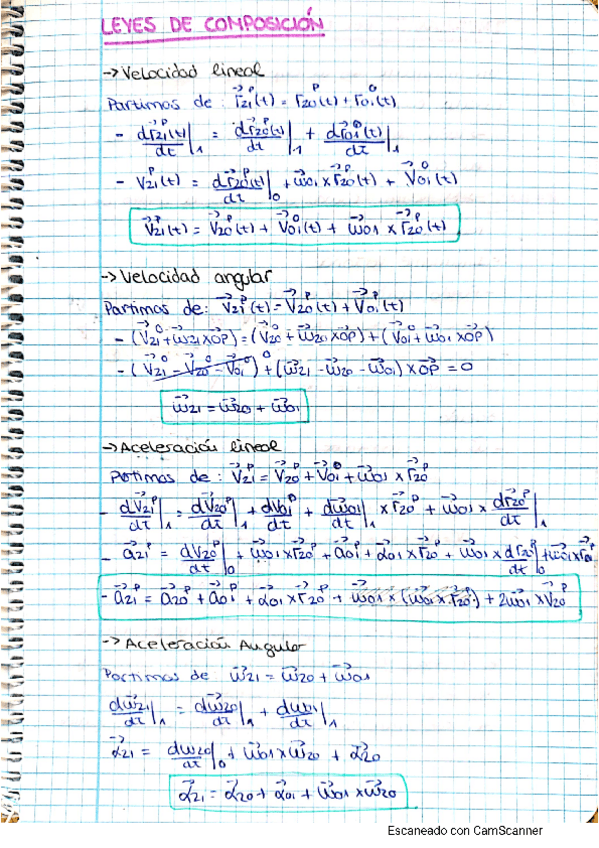 LEYES DE COMPOSICIÓN
→ Velocidad lineal
Partimos de : r⃗₂₁ᴾ(t) = r⃗₂₀ᴾ(t) + r⃗₀₁⁰(t)
- dr⃗₂₁ᴾ(t)/dt |₁ = dr⃗₂₀ᴾ(t)/dt |₁ + dr⃗₀₁⁰(t)/dt |₁
- v⃗₂₁ᴾ(t) = dr⃗₂₀ᴾ(t)/dt |₀ + ω⃗₀₁ × r⃗₂₀ᴾ(t) + v⃗₀₁⁰(t)
v⃗₂₁ᴾ(t) = v⃗₂₀ᴾ(t) + v⃗₀₁⁰(t) + ω⃗₀₁ × r⃗₂₀ᴾ(t)
→ Velocidad angular
Partimos de: v⃗₂₁ᴾ(t) = v⃗₂₀ᴾ(t) + v⃗₀₁ᴾ(t)
- (v⃗₂₁⁰ + ω⃗₂₁ × OP⃗) = (v⃗₂₀⁰ + ω⃗₂₀ × OP⃗) + (v⃗₀₁⁰ + ω⃗₀₁ × OP⃗)
- (v⃗₂₁⁰ - v⃗₂₀⁰ - v⃗₀₁⁰)⁰ + (ω⃗₂₁ - ω⃗₂₀ - ω⃗₀₁) × OP⃗ = 0
ω⃗₂₁ = ω⃗₂₀ + ω⃗₀₁
→ Aceleración lineal
Partimos de : v⃗₂₁ᴾ = v⃗₂₀ᴾ + v⃗₀₁⁰ + ω⃗₀₁ × r⃗₂₀ᴾ
- dv⃗₂₁ᴾ/dt |₁ = dv⃗₂₀ᴾ/dt |₁ + dv⃗₀₁ᴾ/dt |₁ + dω⃗₀₁/dt |₁ × r⃗₂₀ᴾ + ω⃗₀₁ × dr⃗₂₀ᴾ/dt |₁
- a⃗₂₁ᴾ = dv⃗₂₀ᴾ/dt |₀ + ω⃗₀₁ × r⃗₂₀ᴾ + a⃗₀₁ᴾ + α⃗₀₁ × r⃗₂₀ᴾ + ω⃗₀₁ × dr⃗₂₀ᴾ/dt |₀
- a⃗₂₁ᴾ = a⃗₂₀ᴾ + a⃗₀₁ᴾ + α⃗₀₁ × r⃗₂₀ᴾ + ω⃗₀₁ × (ω⃗₀₁ × r⃗₂₀ᴾ) + 2ω⃗₀₁ × v⃗₂₀ᴾ
→ Aceleración Angular
Partimos de ω⃗₂₁ = ω⃗₂₀ + ω⃗₀₁
dω⃗₂₁/dt |₁ = dω⃗₂₀/dt |₁ + dω⃗₀₁/dt |₁
α⃗₂₁ = dω₂₀/dt |₀ + ω⃗₀₁ × ω⃗₂₀ + α⃗₂₀
α⃗₂₁ = α⃗₂₀ + α⃗₀₁ + ω⃗₀₁ × ω⃗₂₀
Escaneado con CamScanner